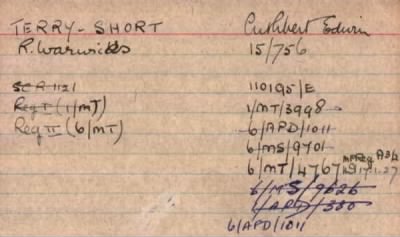 TERRY-SHORT Cuthbert Edwin
R. Warwicks 15/756
SCR 1121 110195/E
Reg I (1/MT) 1/MT/3998
Reg II (6/MT) 6/APD/1011
6/MS/9701
6/MT/4767
6/MS/9626
1/APD/380
6/APD/1011